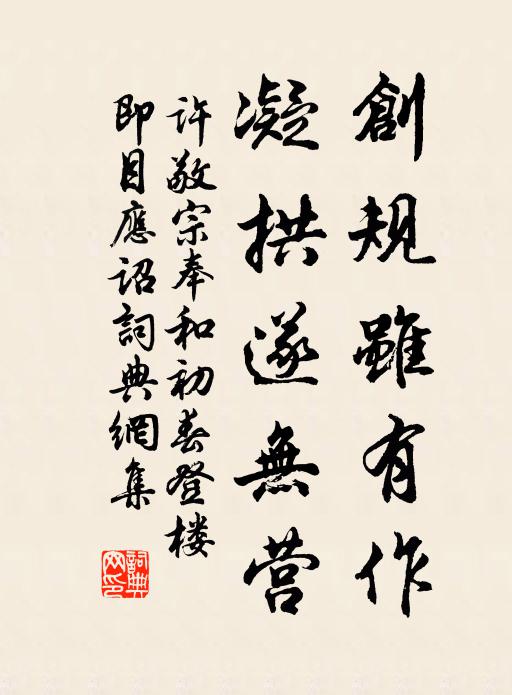 創規雖有作
凝拱遂無営
许敬宗奉和初春登楼
即目應詔詞典網集
詞典网印